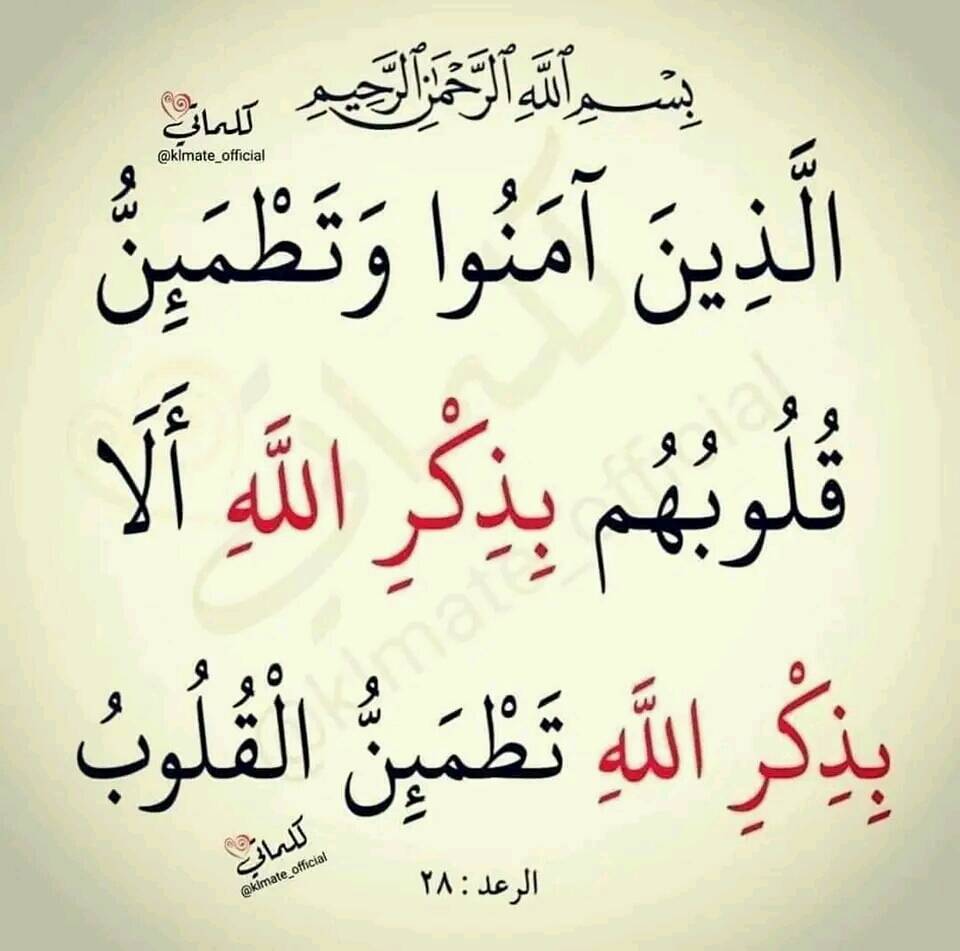 بِسْمِ ٱللَّهِ ٱلرَّحْمَٰنِ ٱلرَّحِيمِ
كلماتي
@klmate_official
الَّذِينَ آمَنُوا وَتَطْمَئِنُّ
قُلُوبُهُم بِذِكْرِ اللَّهِ أَلَا
بِذِكْرِ اللَّهِ تَطْمَئِنُّ الْقُلُوبُ
كلماتي
@klmate_official
الرعد : ٢٨
كلماتي
@klmate_official